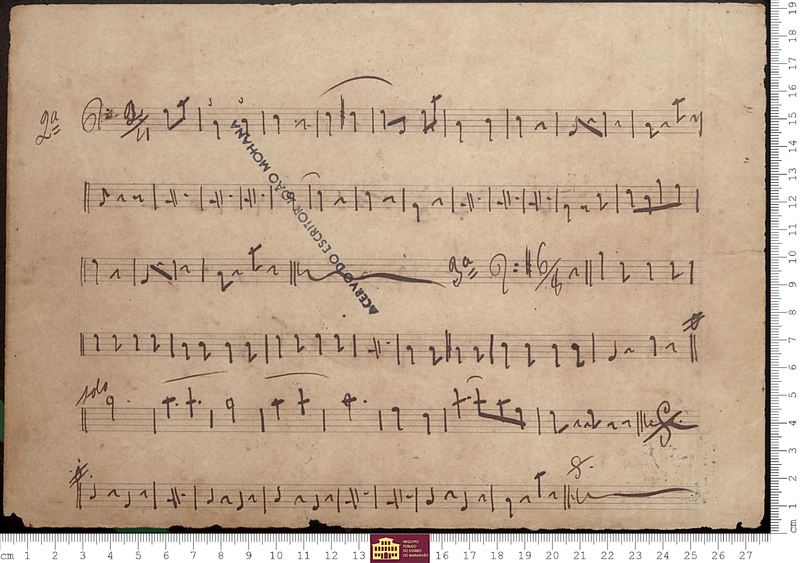 2ª 2/4
ACERVO DO ESCRITOR JOÃO MOHANA
3ª 6/8
solo
cm 1 2 3 4 5 6 7 8 9 10 11 12 13 16 17 18 19 20 21 22 23 24 25 26 27
ARQUIVO
PÚBLICO
DO ESTADO
DO MARANHÃO
cm 1 2 3 4 5 6 7 8 9 10 11 12 13 14 15 16 17 18 19